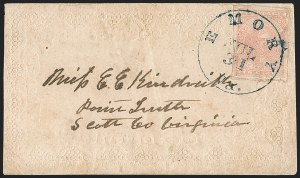 EMORY
JUL
31
Va.
Miss E. E. Kindrick
Point Truth
Scott Co Virginia